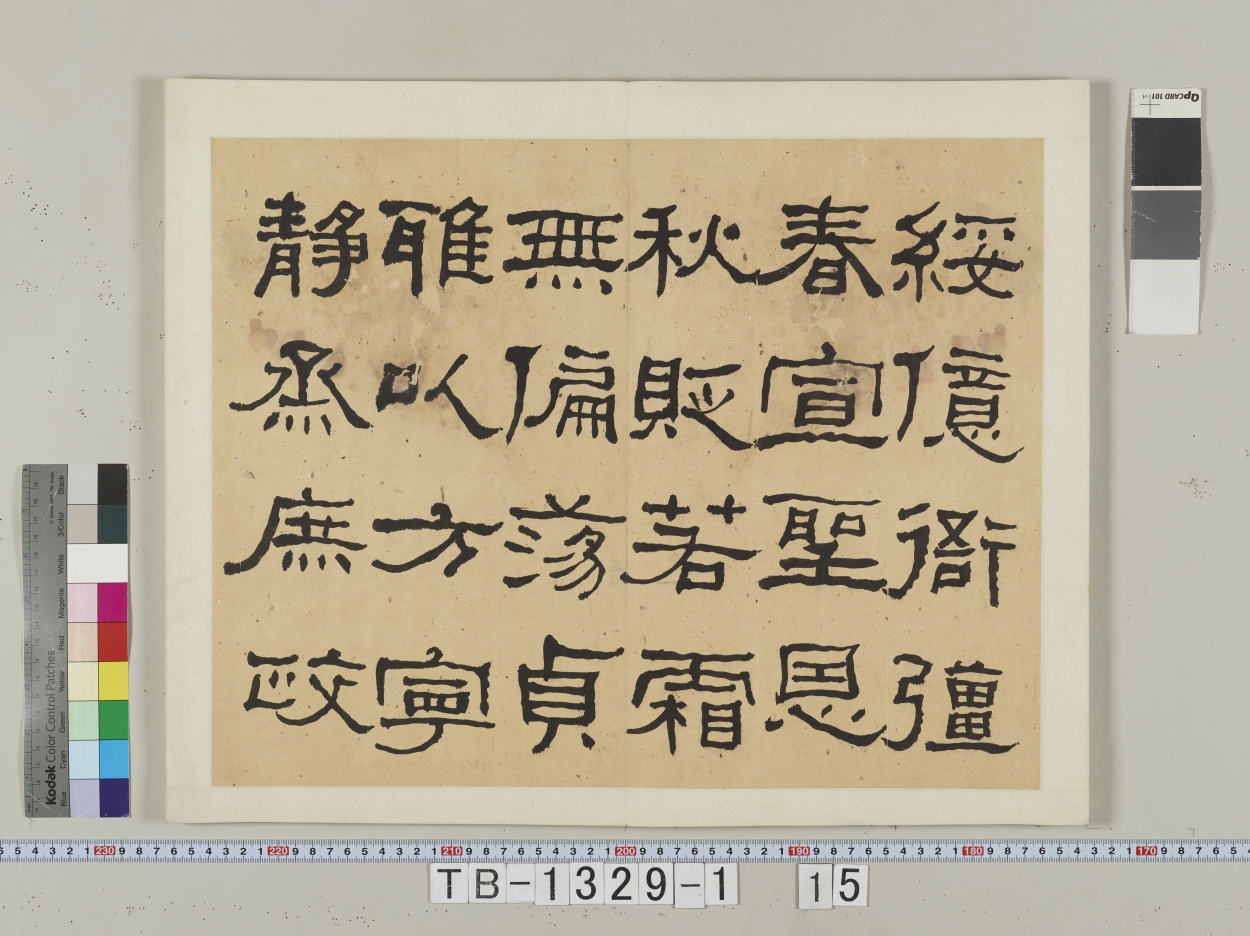 綏億衙彊
春宣聖恩
秋貶若霜
無偏蕩貞
雅以方寧
靜烝庶政
QpCARD 101
Kodak Color Control Patches
Blue Cyan Green Yellow Red Magenta White 3/Color Black
230 220 210 200 190 180 170
TB-1329-1 15